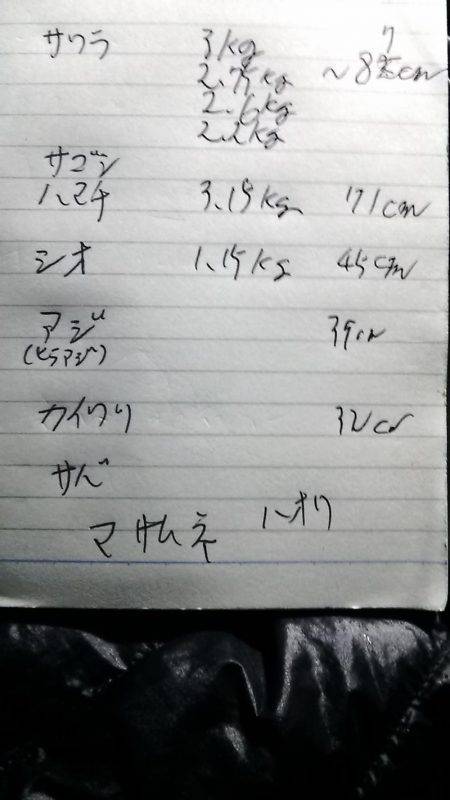 サワラ 3kg 7
2.75kg ~85cm
2.6kg
2.2kg
サゴシ
ハマチ 3.15kg 71cm
シオ 1.15kg 45cm
アジ 39cm
(ヒラアジ)
カイワリ 32cm
サバ
マサムネ ハオリ